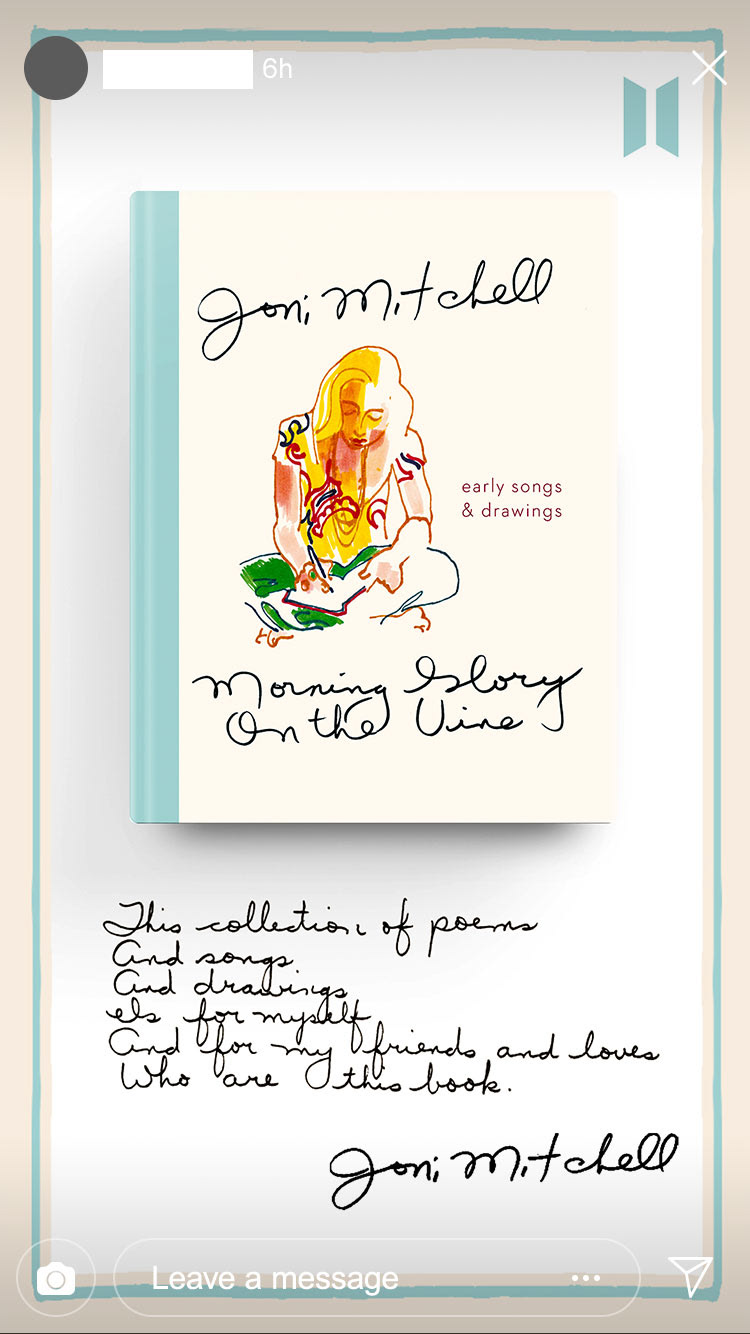 6h
Joni Mitchell
early songs
& drawings
Morning Glory
On the Vine
This collection of poems
And songs
And drawings
Is for myself
And for my friends and loves
Who are this book.
Joni Mitchell
Leave a message